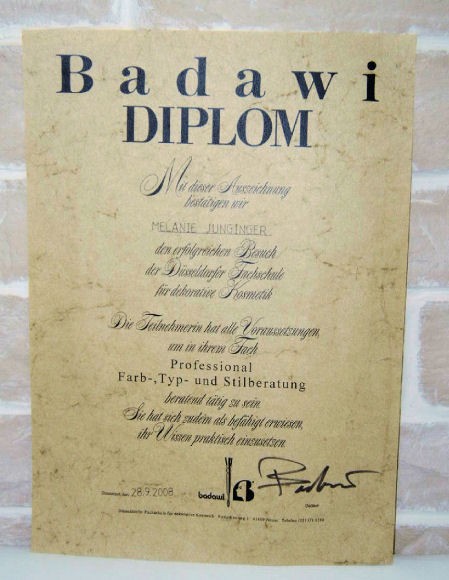 Badawi
DIPLOM
Mit dieser Auszeichnung
bestätigen wir
MELANIE JUNGINGER
den erfolgreichen Besuch
der Düsseldorfer Fachschule
für dekorative Kosmetik
Die Teilnehmerin hat alle Voraussetzungen,
um in ihrem Fach
Professional
Farb-, Typ- und Stilberatung
beratend tätig zu sein.
Sie hat sich zudem als befähigt erwiesen,
ihr Wissen praktisch einzusetzen.
Düsseldorf, den 28.9.2008
badawi B
Düsseldorfer Fachschule für dekorative Kosmetik